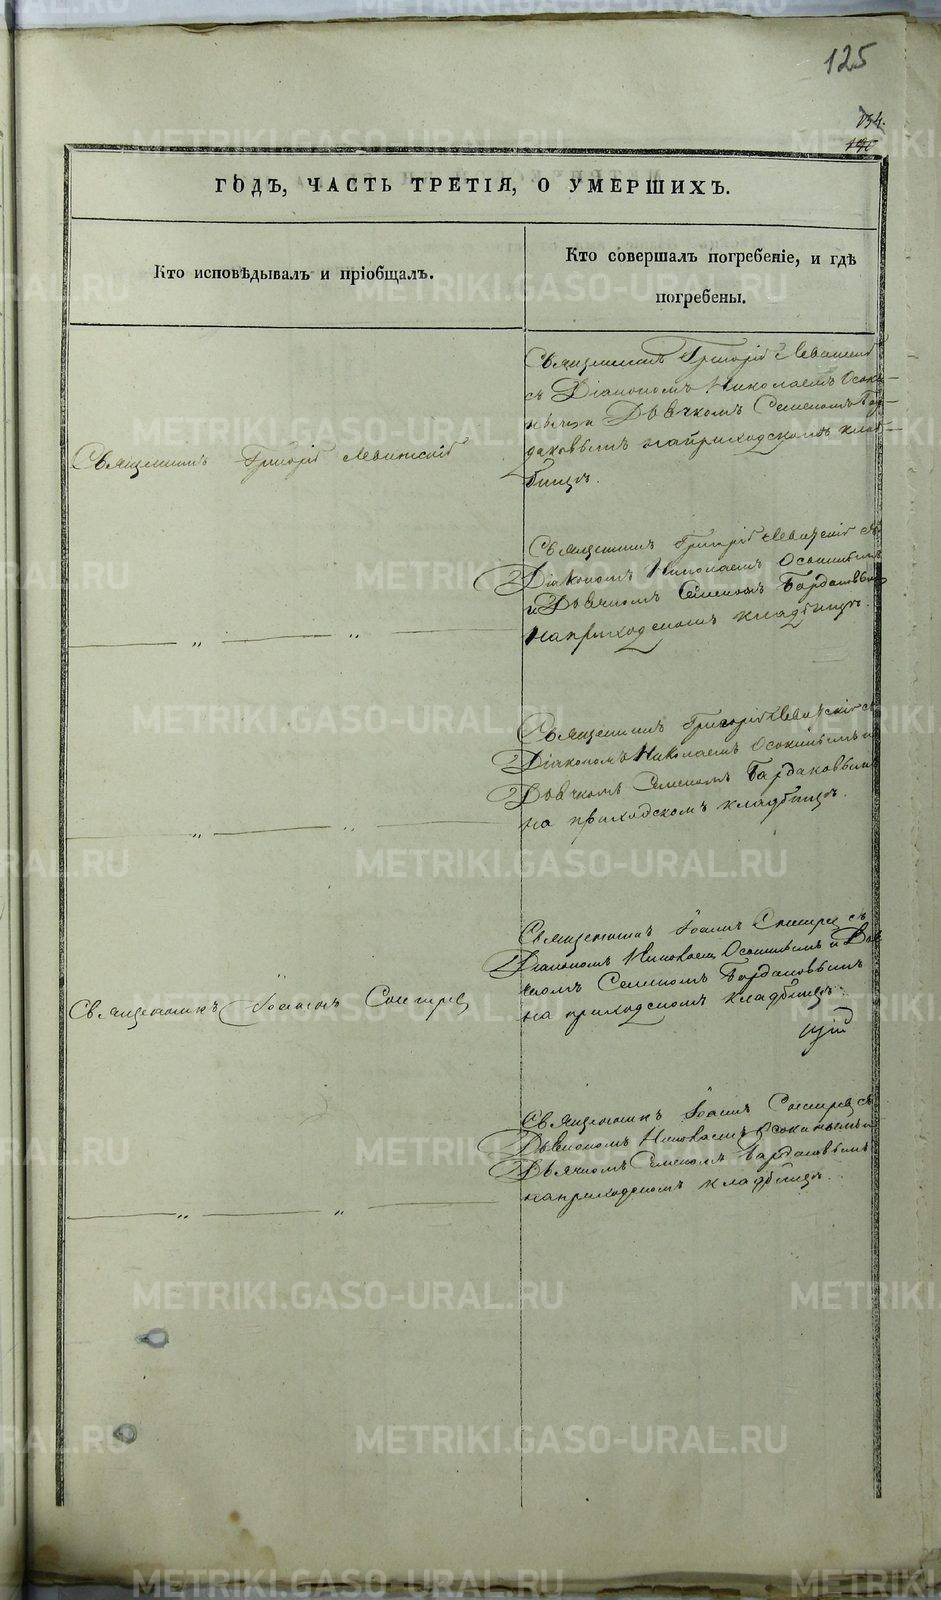 125
134.
ГОДЪ, ЧАСТЬ ТРЕТІЯ, О УМЕРШИХЪ.
Кто исповѣдывалъ и пріобщалъ.
Кто совершалъ погребеніе, и гдѣ
погребены.
Священникъ Григорій Левитскій
Священникъ Григорій Левитскій
съ Діакономъ Николаемъ Осоки-
нымъ и Дьячкомъ Семеномъ Бар-
даковымъ на приходскомъ клад-
бищѣ.
Священникъ Григорій Левитскій съ
Діакономъ Николаемъ Осокинымъ
и Дьячкомъ Семеномъ Бардаковымъ
на приходскомъ кладбищѣ.
— „ — „ —
Священникъ Григорій Левитскій съ
Діакономъ Николаемъ Осокинымъ и
Дьячкомъ Семеномъ Бардаковымъ
на приходскомъ кладбищѣ.
— „ — „ —
Священникъ Іоаннъ
Священникъ Іоаннъ съ
Діакономъ Николаемъ Осокинымъ и Дья
чкомъ Семеномъ Бардаковымъ
на приходскомъ кладбищѣ.
Священникъ Іоаннъ съ
Діакономъ Николаемъ Осокинымъ и
Дьячкомъ Семеномъ Бардаковымъ
на приходскомъ кладбищѣ.
— „ — „ —
METRIKI.GASO-URAL.RU